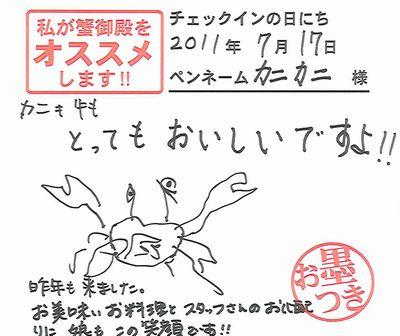 私が蟹御殿を
オススメ
します!!
チェックインの日にち
2011年 7月 17日
ペンネーム カニカニ 様
カニも牛も
とっても おいしいですよ!!
お墨つき
昨年も来ました。
お美味いお料理とスタッフさんのお心配
りに 娘も この笑顔です!!